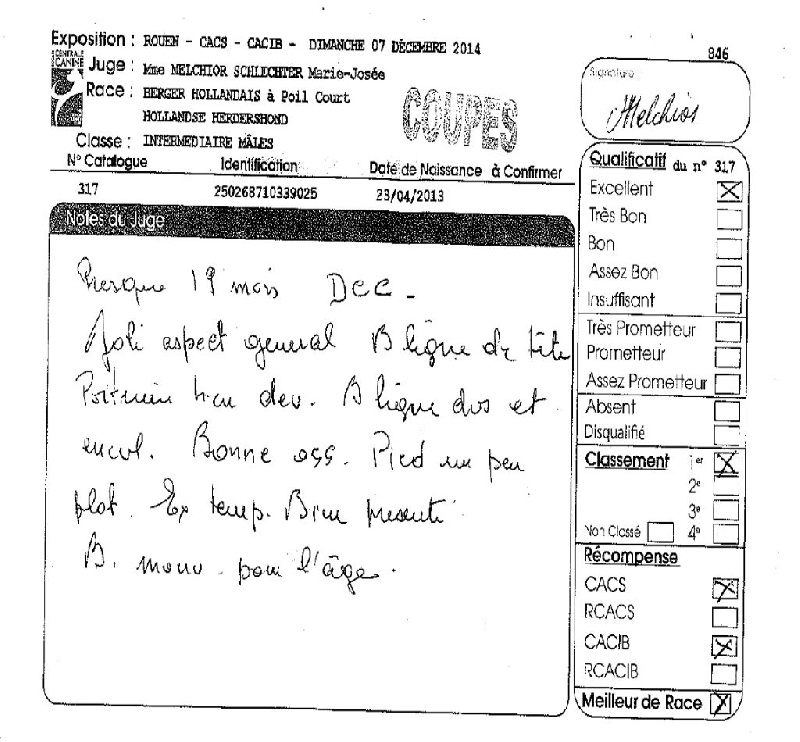 Exposition : ROUEN - CACS - CACIB - DIMANCHE 07 DÉCEMBRE 2014
846
CENTRALE CANINE
Juge : Mme MELCHIOR SCHLECHTER Marie-Josée
Race : BERGER HOLLANDAIS à Poil Court
HOLLANDSE HERDERSHOND
COUPES
Signature
Melchior
Classe : INTERMEDIAIRE MÂLES
N° Catalogue Identification Date de Naissance à Confirmer
317 250268710339025 23/04/2013
Notes du Juge
Presque 19 mois Dcc -
Joli aspect general B ligne de tête
Poitrail bien dev. B ligne dos et
encol. Bonne oss. Pied un peu
plat. Ex temp. Bien presenté
B. mouv. pour l'âge.
Qualificatif du n° 317
Excellent
Très Bon
Bon
Assez Bon
Insuffisant
Très Prometteur
Prometteur
Assez Prometteur
Absent
Disqualifié
Classement 1er
2e
3e
Non Classé 4e
Récompense
CACS
RCACS
CACIB
RCACIB
Meilleur de Race